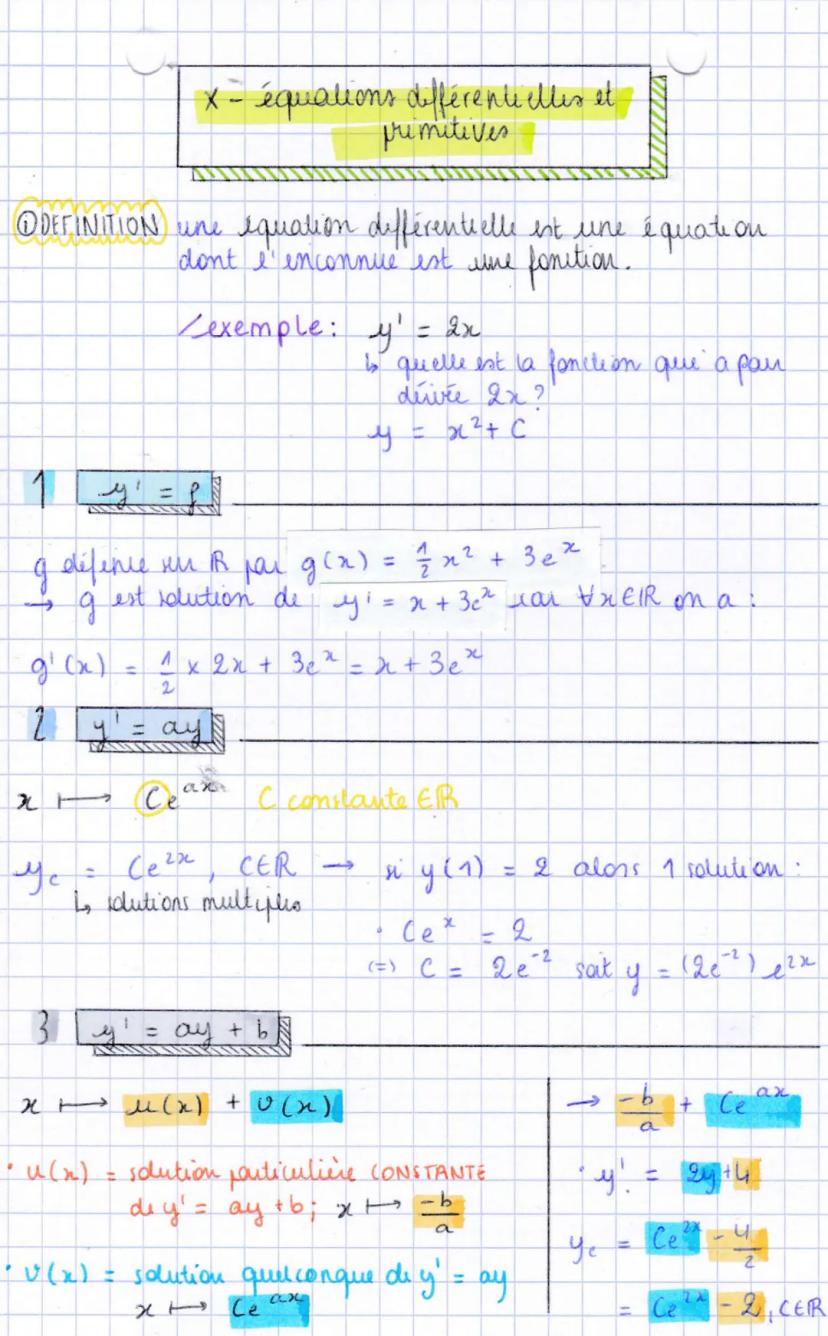 X - équations différentielles et
primitives
① DEFINITION une équation différentielle est une équation
dont l'inconnue est une fonction.
exemple: y' = 2x
↳ quelle est la fonction qui a pour
dérivée 2x ?
y = x² + C
1 y' = f
g définie sur ℝ par g(x) = 1/2 x² + 3e^x
→ g est solution de y' = x + 3e^x car ∀x∈ℝ on a :
g'(x) = 1/2 × 2x + 3e^x = x + 3e^x
2 y' = ay
x ↦ Ce^ax C constante ∈ℝ
y_c = Ce^2x, C∈ℝ → si y(1) = 2 alors 1 solution :
↳ solutions multiples
• Ce^x = 2
(=) C = 2e^-2 soit y = (2e^-2) e^2x
3 y' = ay + b
x ↦ u(x) + v(x)
• u(x) = solution particulière CONSTANTE
de y' = ay + b; x ↦ -b/a
• v(x) = solution quelconque de y' = ay
x ↦ Ce^ax
→ -b/a + Ce^ax
• y' = 2y + 4
y_c = Ce^2x - 4/2
= Ce^2x - 2, C∈ℝ